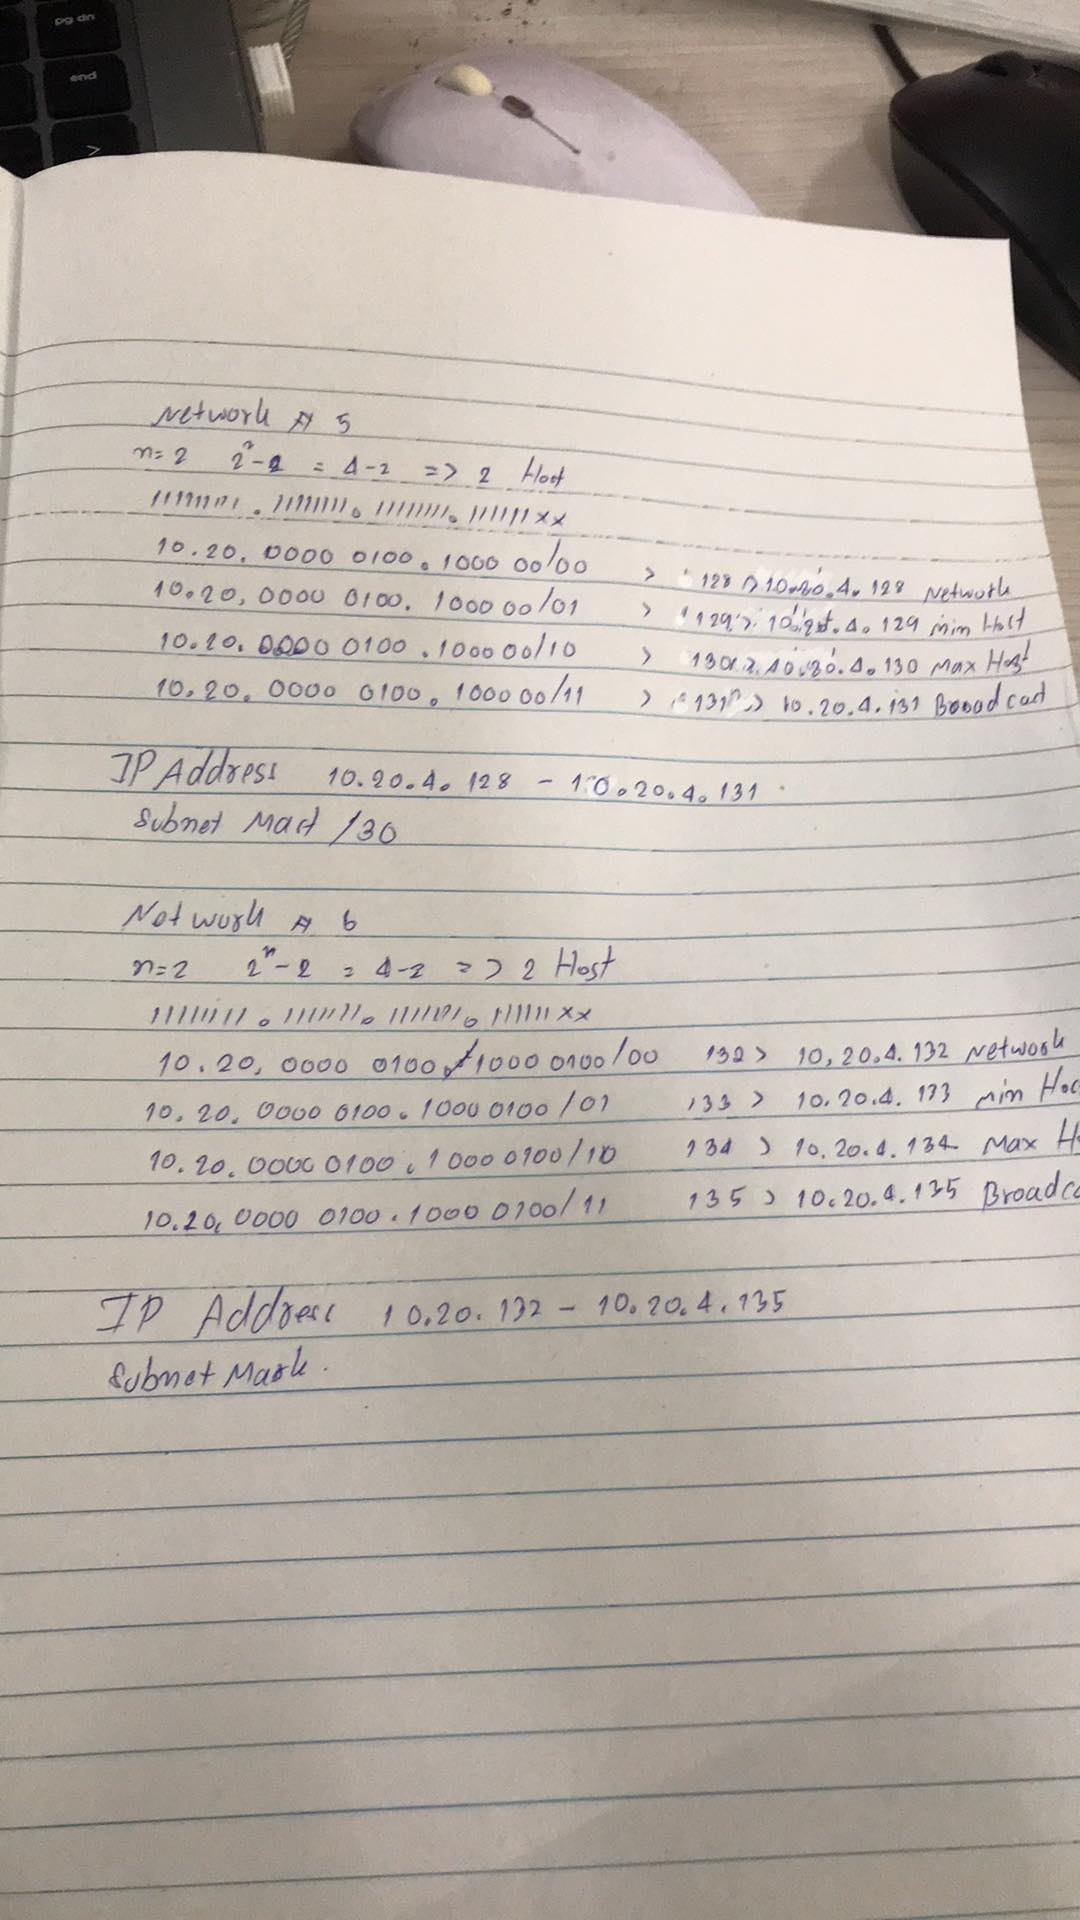 pg dn
end
Network A 5
n=2 2ⁿ-2 = 4-2 => 2 Host
11111111.11111111.11111111.111111xx
10.20.0000 0100.1000 00/00 > 128 > 10.20.4.128 Network
10.20.0000 0100.1000 00/01 > 129 > 10.20.4.129 min Host
10.20.0000 0100.1000 00/10 > 130 > 10.20.4.130 Max Host
10.20.0000 0100.1000 00/11 > 131 > 10.20.4.131 Broadcast
IP Address 10.20.4.128 - 10.20.4.131
Subnet Mast /30
Network A 6
n=2 2ⁿ-2 = 4-2 => 2 Host
11111111.11111111.11111111.111111xx
10.20.0000 0100.1000 0100/00 132 > 10.20.4.132 Network
10.20.0000 0100.1000 0100/01 133 > 10.20.4.133 min Hos
10.20.0000 0100.1000 0100/10 134 > 10.20.4.134 Max H
10.20.0000 0100.1000 0100/11 135 > 10.20.4.135 Broadca
IP Address 10.20.132 - 10.20.4.135
Subnet Mask.